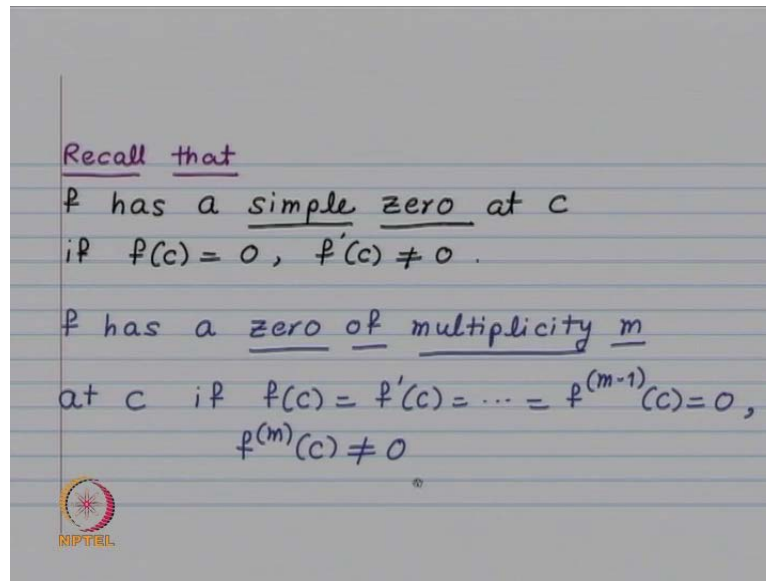 Recall that
f has a simple zero at c
if f(c) = 0, f'(c) ≠ 0.
f has a zero of multiplicity m
at c if f(c) = f'(c) = ··· = f^(m-1)(c) = 0,
f^(m)(c) ≠ 0
NPTEL